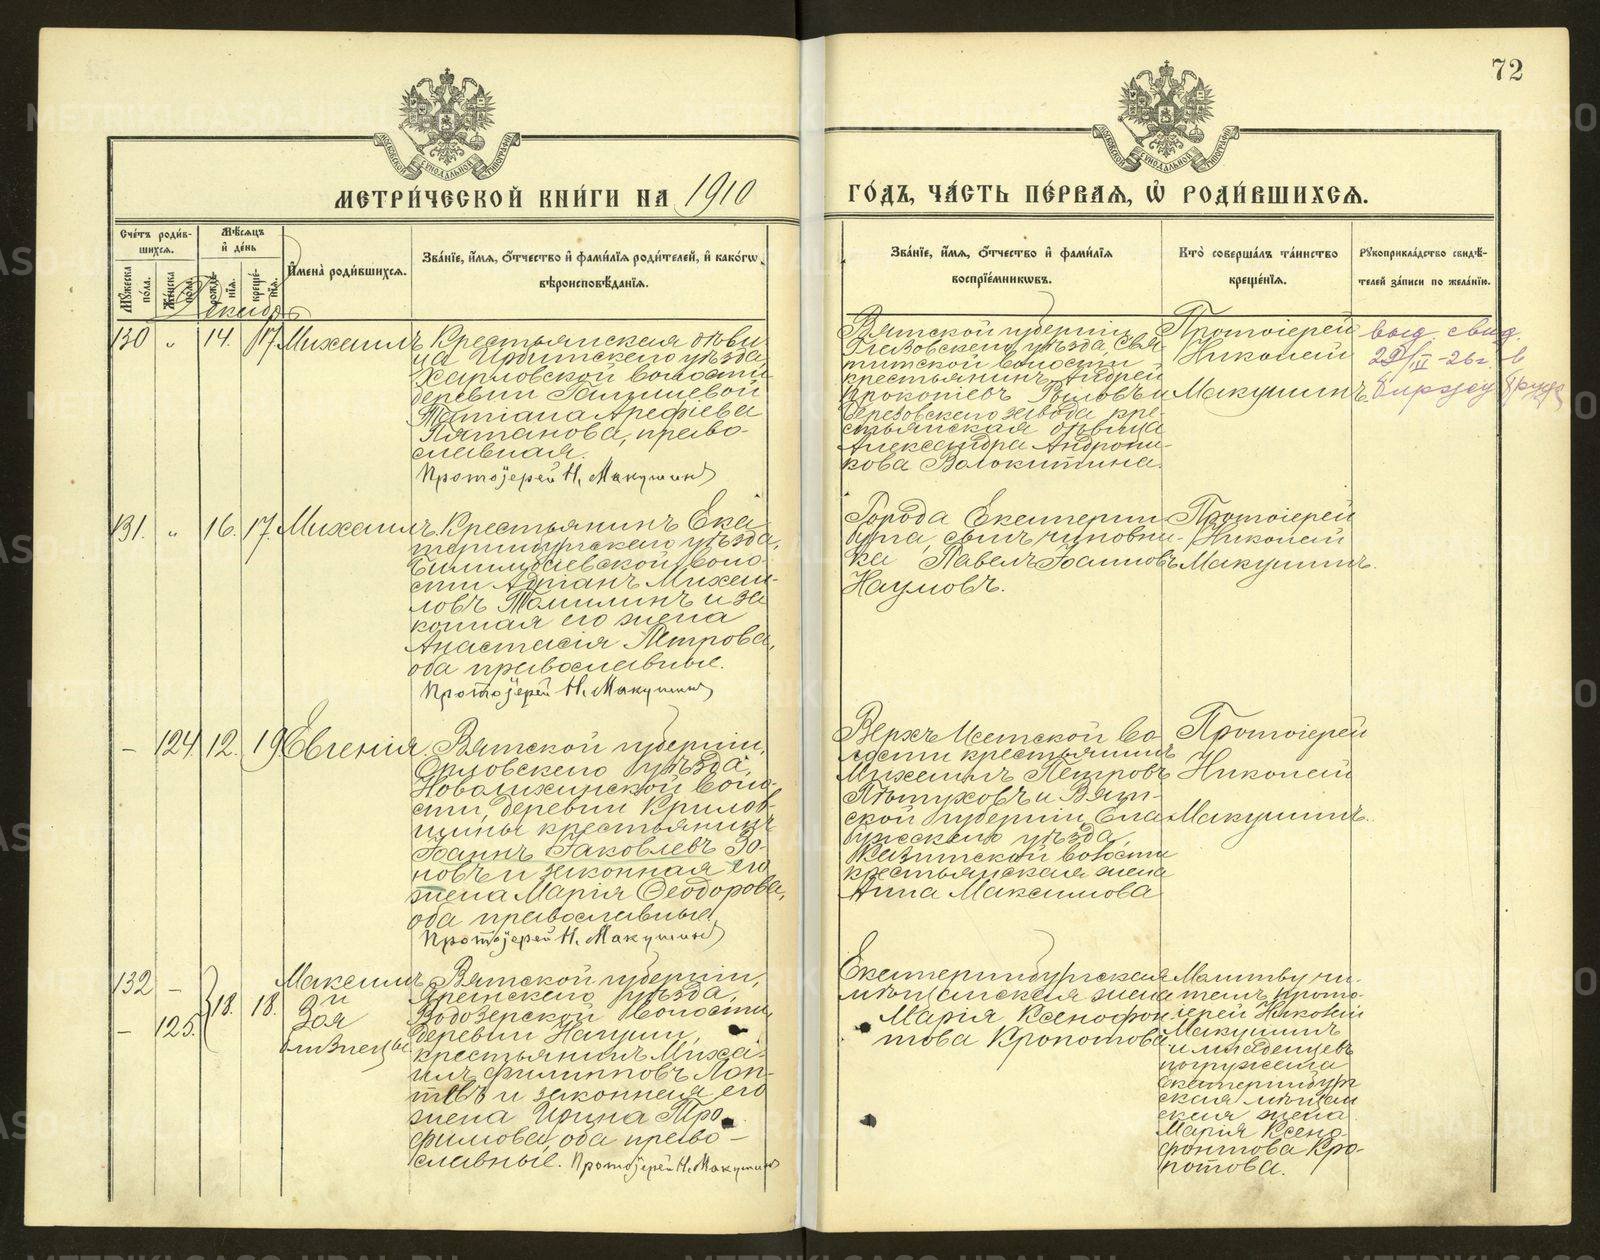 72
МЕТРИ́ЧЕСКОЙ КНИ́ГИ НА 1910
ГО́ДЪ, ЧА́СТЬ ПЕ́РВАЯ, Ѽ РОДИ́ВШИХСЯ.
Сче́тъ роди́в-
шихся.
Мѣ́сяцъ
и҆ де́нь
Му́жеска
по́ла.
Же́нска
по́ла.
рожде́-
нїѧ.
креще́-
нїѧ.
И҆мена̀ роди́вшихсѧ.
Зва́нїе, и҆́мѧ, ѻ҆́тчество и҆ фами́лїѧ роди́телей, и҆ како́гѡ
вѣроисповѣ́данїѧ.
Зва́нїе, и҆́мѧ, ѻ҆́тчество и҆ фами́лїѧ
воспрїе́мниковъ.
Кто̀ соверша́лъ та́инство
креще́нїѧ.
Рꙋкоприкла́дство свидѣ́-
телей за́писи по жела́нїю.
Декабрь
130 „ 14. 17. Михаилъ
Крестьянская дѣви
ца Ирбитского уѣзда
Харловской волости
деревни
Татіана Арефіева
Пятанова, право-
славная.
Протоіерей Н. Макушинъ
Вятской губерніи
Глазовскаго уѣзда Свя-
титской волости
крестьянинъ Андрей
Прокопіевъ и
Березовскаго завода кре-
стьянская дѣвица
Александра Андрони-
кова Волокитина.
Протоіерей
Николай
Макушинъ.
выд. свид.
22/III-26 г. в
биржу труда
131. „ 16. 17. Михаилъ.
Крестьянинъ Ека
теринбургскаго уѣзда,
Билимбаевской воло-
сти Адріанъ Михаи-
ловъ Томилинъ и за
конная его жена
Анастасія Петрова,
оба православные.
Протоіерей Н. Макушинъ
Города Екатерин-
бурга, сынъ чиновни-
ка Павелъ Іоанновъ
Наумовъ.
Протоіерей
Николай
Макушинъ.
– 124. 12. 19. Евгенія.
Вятской губерніи,
Орловскаго уѣзда,
волo-
сти, деревни Крилов-
щины крестьянинъ
Іоаннъ Іаковлевъ Зо-
новъ и законная его
жена Марія Ѳеодорова,
оба православные
Протоіерей Н. Макушинъ
Верхъ Исетской во
лости крестьянинъ
Михаилъ Петровъ
Пѣтуховъ и Вят-
ской губерніи, Ела
бужскаго уѣзда,
волости
крестьянская жена
Анна Максимова
Протоіерей
Николай
Макушинъ.
132 –
– 125.
18. 18.
Максимъ
и
Зоя
близнецы
Вятской губерніи,
Яранскаго уѣзда,
Водозерской волости,
деревни
крестьянинъ Миха-
илъ Филипповъ Лап-
тевъ и законная его
жена Ирина Тро
фимова, оба право-
славные. Протоіерей Н. Макушинъ
Екатеринбургская
мѣщанская жена
Марія Ксенофон
това Кропотова
Молитву чи-
талъ прото-
іерей Николай
Макушинъ
и младенцевъ
погружала
Екатеринбург
ская мѣщан
ская жена
Марія Ксено-
фонтова Кро-
потова.